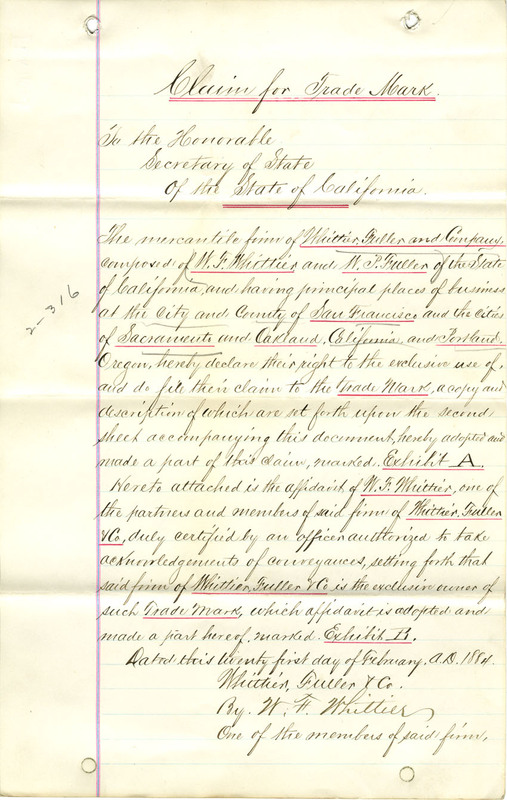 Claim for Trade Mark.
To the Honorable
Secretary of State
Of the State of California.
The mercantile firm of Whittier, Fuller and Company,
composed of W. F. Whittier and W. P. Fuller of the State
of California, and having principal places of business
at the City and County of San Francisco and the cities
of Sacramento and Oakland, California, and Portland,
Oregon, hereby declare their right to the exclusive use of,
and do file their claim to the Trade Mark, a copy and
description of which are set forth upon the second
sheet accompanying this document, hereby adopted and
made a part of this claim, marked. Exhibit A.
Hereto attached is the affidavit of W. F. Whittier, one of
the partners and members of said firm of Whittier, Fuller
& Co, duly certified by an officer authorized to take
acknowledgements of conveyances, setting forth that
said firm of Whittier, Fuller & Co is the exclusive owner of
such Trade Mark, which affidavit is adopted and
made a part hereof, marked. Exhibit B.
Dated this twenty first day of February, A.D. 1884.
Whittier, Fuller & Co.
By. W. F. Whittier
One of the members of said firm,
2-316